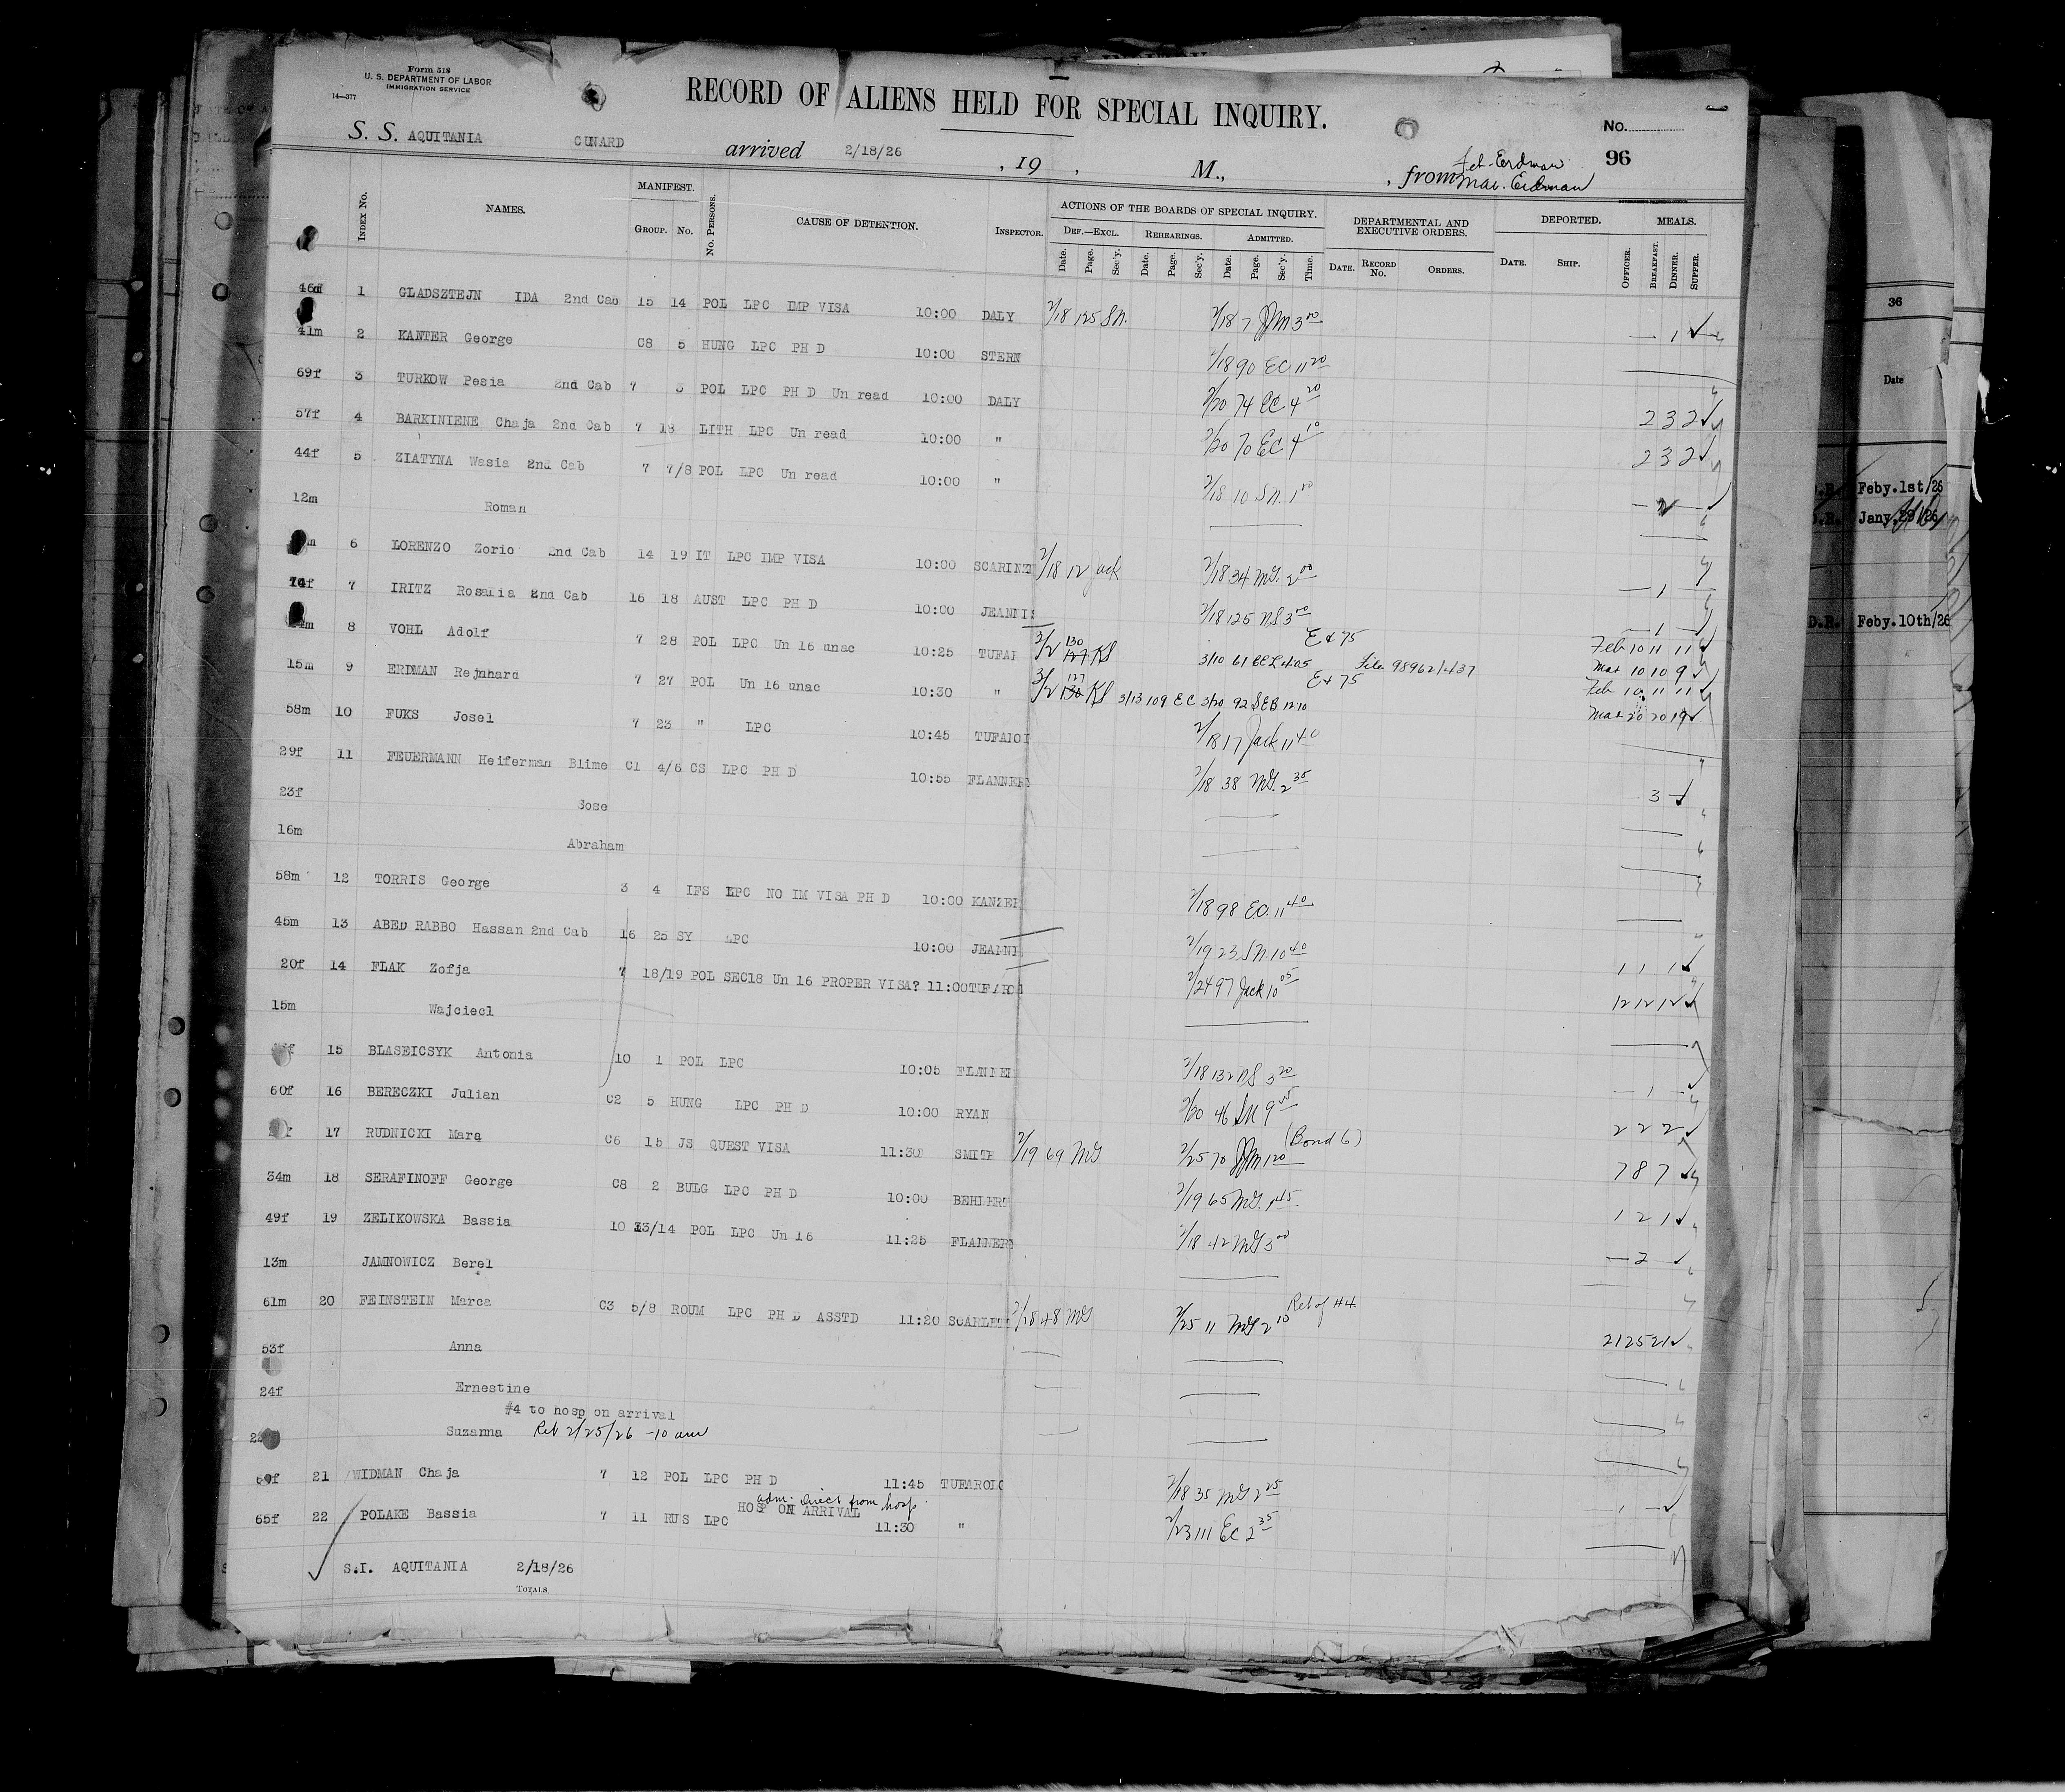 Form 518
U. S. DEPARTMENT OF LABOR
IMMIGRATION SERVICE
14—377
RECORD OF ALIENS HELD FOR SPECIAL INQUIRY.
No.
96
S. S. AQUITANIA CUNARD arrived 2/18/26 , 19 , M., , from Feb-Erdman
Mar. Erdman
INDEX No. NAMES. MANIFEST. GROUP. No. No. PERSONS. CAUSE OF DETENTION. INSPECTOR. ACTIONS OF THE BOARDS OF SPECIAL INQUIRY. DEPARTMENTAL AND EXECUTIVE ORDERS. DEPORTED. MEALS.
DEF.—EXCL. REHEARINGS. ADMITTED.
Date. Page. Sec'y. Date. Page. Sec'y. Date. Page. Sec'y. Time. DATE. RECORD No. ORDERS. DATE. SHIP. OFFICER. BREAKFAST. DINNER. SUPPER.
1 GLADSZTEJN IDA 2nd Cab 15 14 POL LPC IMP VISA 10:00 DALY 2/18 125 SN. 2/18 7 JM 3 00 — 1 —
41m 2 KANTER George C8 5 HUNG LPC PH D 10:00 STERN 2/18 90 EC 11 20
69f 3 TURKOW Pesia 2nd Cab 7 POL LPC PH D Un read 10:00 DALY 2/20 74 EC 4 20 2 3 2
57f 4 BARKINIENE Chaja 2nd Cab 7 18 LITH LPC Un read 10:00 " 2/20 70 EC 4 10 2 3 2
44f 5 ZIATYNA Wasia 2nd Cab 7 7/8 POL LPC Un read 10:00 " 2/18 10 SN. 1 00 — 2 —
12m Roman
6 LORENZO Zorio 2nd Cab 14 19 IT LPC IMP VISA 10:00 SCARINZI 2/18 12 Jack 2/18 34 MG. 2 00 — 1 —
7 IRITZ Rosalia 2nd Cab 16 18 AUST LPC PH D 10:00 JEANNIS 2/18 125 NS 3 00 — 1 —
8 VOHL Adolf 7 28 POL LPC Un 16 unac 10:25 TUFAI 3/2 130 127 KS 3/10 61 EC 4.05 Ex 75 File 98962/437 Feb 10 11 11
Mar 10 10 9
15m 9 ERDMAN Rejnhard 7 27 POL Un 16 unac 10:30 " 3/2 127 130 KS 3/13 109 EC 3/20 92 SEB 12 10 Ex 75 Feb 10 11 11
Mar 20 20 19
58m 10 FUKS Josel 7 23 " LPC 10:45 TUFAIOI 2/18 17 Jack 11 40
29f 11 FEUERMANN Heiferman Blime C1 4/6 CS LPC PH D 10:55 FLANNERY 2/18 38 MG. 2 35 3 —
23f Sose
16m Abraham
58m 12 TORRIS George 3 4 IFS LPC NO IM VISA PH D 10:00 KANZER 2/18 98 EC. 11 40
45m 13 ABED RABBO Hassan 2nd Cab 16 25 SY LPC 10:00 JEANNI 2/19 23 SN. 10 40 1 1 1
20f 14 FLAK Zofja 7 18/19 POL SEC18 Un 16 PROPER VISA? 11:00 TUFAROI 2/24 97 Jack 10 05 12 12 12
15m Wajciecl
15 BLASEICSYK Antonia 10 1 POL LPC 10:05 FLANNER 2/18 132 NS 3 20 — 1 —
60f 16 BERECZKI Julian C2 5 HUNG LPC PH D 10:00 RYAN 2/20 46 SN 9 2 2 2
17 RUDNICKI Mara C6 15 JS QUEST VISA 11:30 SMITH 2/19 69 MG 2/25 70 JM 1 20 (Bond 6) 7 8 7
34m 18 SERAFINOFF George C8 2 BULG LPC PH D 10:00 BEHLERT 2/19 65 MG. 1 45 1 2 1
49f 19 ZELIKOWSKA Bassia 10 13/14 POL LPC Un 16 11:25 FLANNERY 2/18 42 MG 3 00 — 2 —
13m JAMNOWICZ Berel
61m 20 FEINSTEIN Marca C3 5/8 ROUM LPC PH D ASSTD 11:20 SCARLETT 2/18 48 MG 2/25 11 MG 2 10 Ret of #4 21 25 21
53f Anna
24f Ernestine
#4 to hosp on arrival
Suzanna Ret 2/25/26 - 10 am
21 WIDMAN Chaja 7 12 POL LPC PH D 11:45 TUFAROLO 2/18 35 MG 2 25 1 —
adm. direct from hosp.
HOSP ON ARRIVAL
65f 22 POLAKE Bassia 7 11 RUS LPC 11:30 " 2/23 111 EC 2 35
S.I. AQUITANIA 2/18/26
TOTALS
36
Date
Feby.1st/26
Jany.29/26
D.R. Feby.10th/26